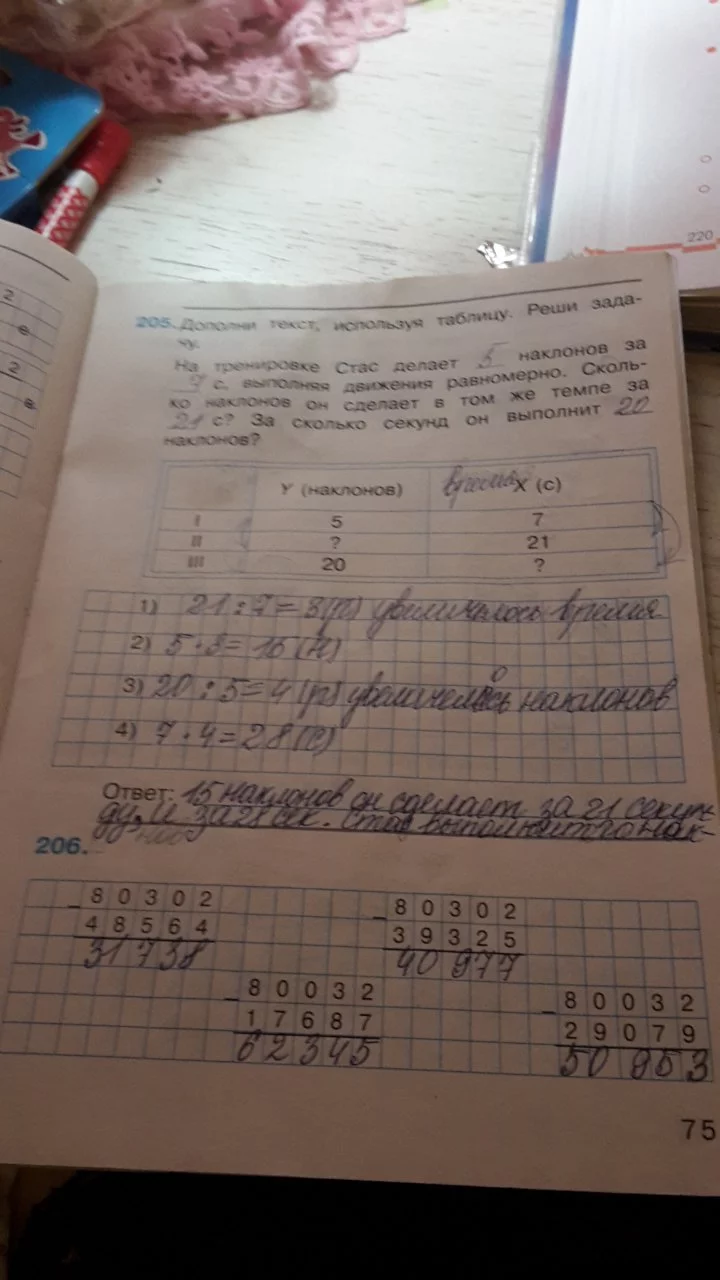 220
2
е
2
в
205. Дополни текст, используя таблицу. Реши зада-
чу.
На тренировке Стас делает 5 наклонов за
7 с, выполняя движения равномерно. Сколь-
ко наклонов он сделает в том же темпе за
21 с? За сколько секунд он выполнит 20
наклонов?
Y (наклонов) время X (с)
I 5 7
II ? 21
III 20 ?
1) 21:7=3(р) увеличилось время
2) 5·3=15(н)
3) 20:5=4(р) увеличелось о наклонов
4) 7·4=28(с)
Ответ: 15 наклонов он сделает за 21 секун-
ду, и за 28 сек. Стас выполнит 20 нак-
206.
_80302 _80302
48564 39325
31738 40977
_80032 _80032
17687 29079
62345 50953
75